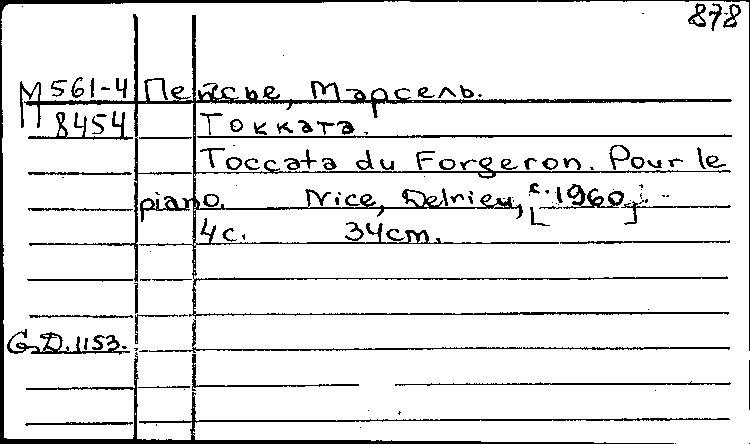 878
М 561-4 Пейсье, Марсель.
8454 Токката.
Toccata du Forgeron. Pour le
piano. Nice, Delrieu, [c. 1960].
4 с. 34 cm.
G.D. 1153.